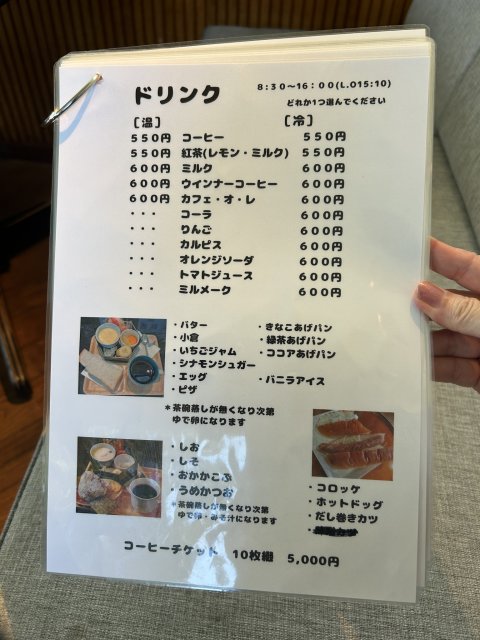 ドリンク
8:30～16:00(L.O15:10)
どれか1つ選んでください
[温] [冷]
550円 コーヒー 550円
550円 紅茶(レモン・ミルク) 550円
600円 ミルク 600円
600円 ウインナーコーヒー 600円
600円 カフェ・オ・レ 600円
・・・ コーラ 600円
・・・ りんご 600円
・・・ カルピス 600円
・・・ オレンジソーダ 600円
・・・ トマトジュース 600円
・・・ ミルメーク 600円
・バター ・きなこあげパン
・小倉 ・緑茶あげパン
・いちごジャム ・ココアあげパン
・シナモンシュガー
・エッグ ・バニラアイス
・ピザ
＊茶碗蒸しが無くなり次第
ゆで卵になります
・しお
・しそ
・おかかこぶ
・うめかつお
＊茶碗蒸しが無くなり次第
ゆで卵・みそ汁になります
・コロッケ
・ホットドッグ
・だし巻きカツ
コーヒーチケット 10枚綴 5,000円